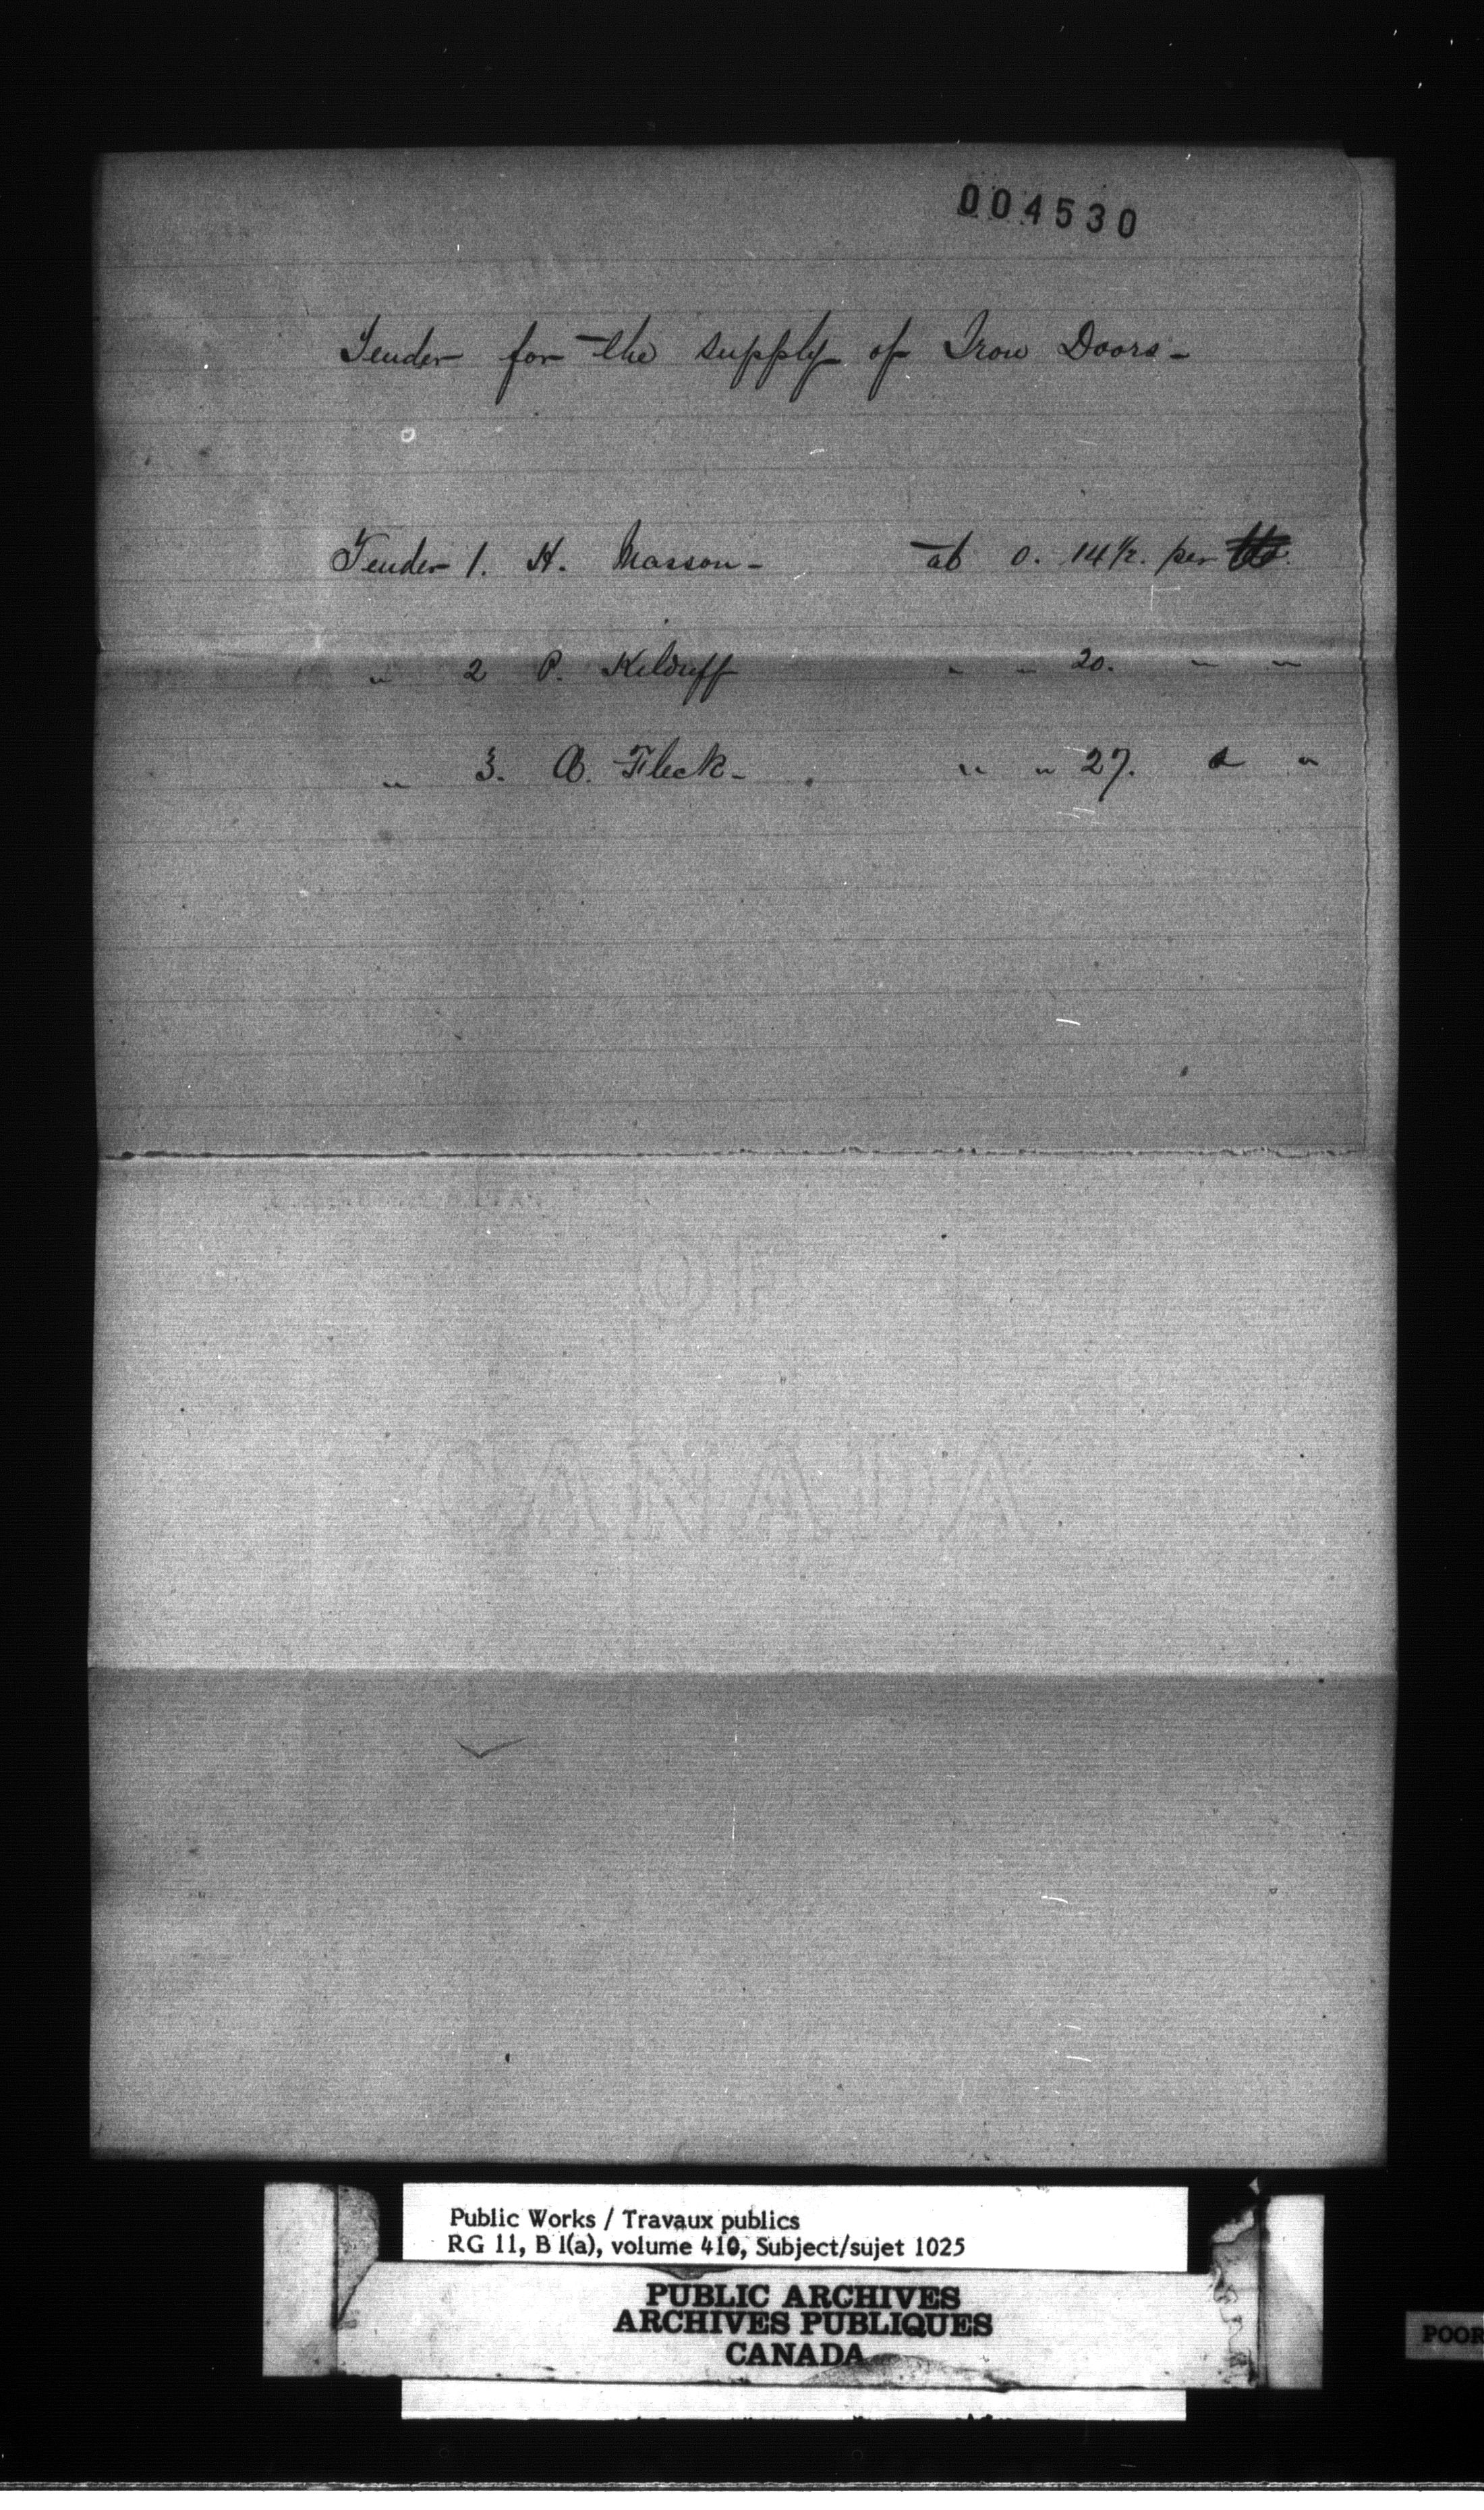 004530
Tender for the supply of Iron Doors -
Tender 1. H. Masson - at 0. 14 1/2. per lb.
" 2 P. Kilduff " " 20. " "
" 3. A. Fleck - " " 27. " "
OF
CANADA
Public Works / Travaux publics
RG 11, B 1(a), volume 410, Subject/sujet 1025
PUBLIC ARCHIVES
ARCHIVES PUBLIQUES
CANADA
POOR